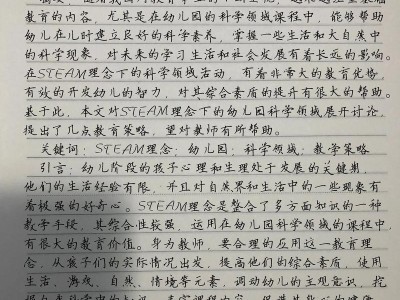 教育的内容，尤其是在幼儿园的科学领域课程中，能够帮助
幼儿在儿时建立良好的科学素养，掌握一些生活和大自然中
的科学现象，对未来的学习生活和社会发展有着长远的影响。
在STEAM理念下的科学领域活动，有着非常大的教育优格，
有效的开发幼儿的智力，对其综合素质的提升有很大的帮助。
基于此，本文对STEAM理念下的幼儿园科学领域展开讨论，
提出了几点教育策略，望对教师有所帮助。
关键词：STEAM理念；幼儿园；科学领域；教学策略
引言：幼儿阶段的孩子心理和生理处于发展的关键期，
他们的生活经验有限，并且对自然界和生活中的一些现象有
着极强的好奇心。STEAM理念是整合了多方面知识的一种
教学手段，其综合性较强，运用在幼儿园科学领域的课程中，
有很大的教育价值。身为教师，要合理的应用这一教育理
念，从孩子们的实际情况出发，提高他们的综合素质，使用
生活、游戏、自然、情境等元素，调动幼儿的主观意识，挖